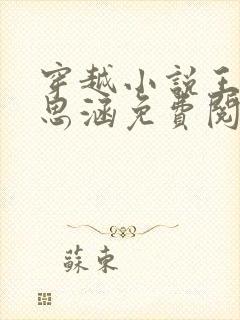 穿越小說王
思涵免費閱
蘇東